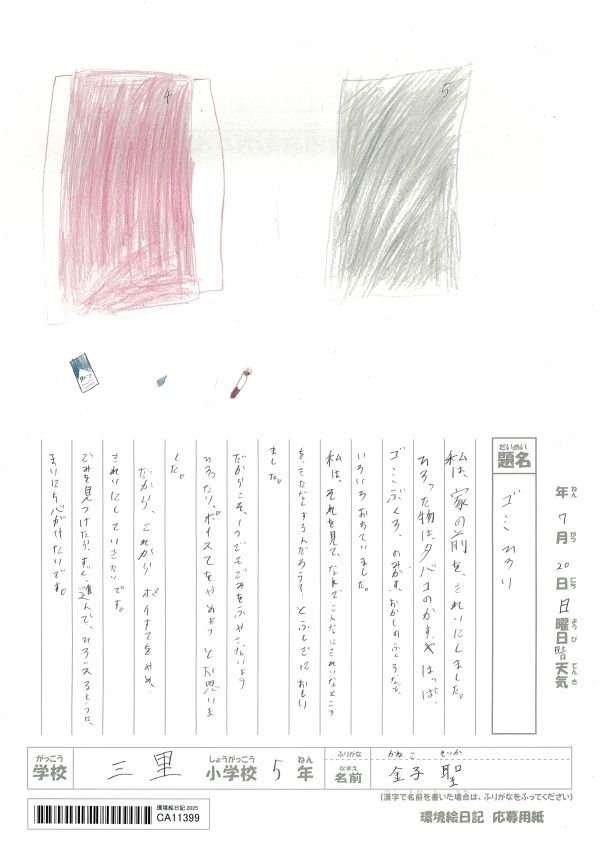 4
5
だいめい
題名
ゴミひろい
年 7月 20日 日曜日 晴 天気
ねん がつ にち ようび てんき
私は、家の前を、きれいにしました。
ひろった物は、タバコのかすやはっぱ、
ゴミぶくろ、のみかす、おかしのふくろなど、
いろいろおちていました。
私は、それを見て、なんでこんなにきれいなところ
をきたなくするんだろう?とふしぎにおもい
ました。
だからこそ、1つでもごみをふやさないよう
ひろったり、ポイすてをやめようと思いま
した。
だから、これからポイすてをやめ、
きれいにしていきたいです。
ごみを見つけたら、すぐ、進んで、ひろえるように、
まいにち心がけたいです。
がっこう しょうがっこう ねん
学校 三里 小学校 5年
ふりがな かねこ せいか
なまえ
名前 金子 聖
(漢字で名前を書いた場合は、ふりがなをふってください)
環境絵日記 2025
CA11399
環境絵日記 応募用紙